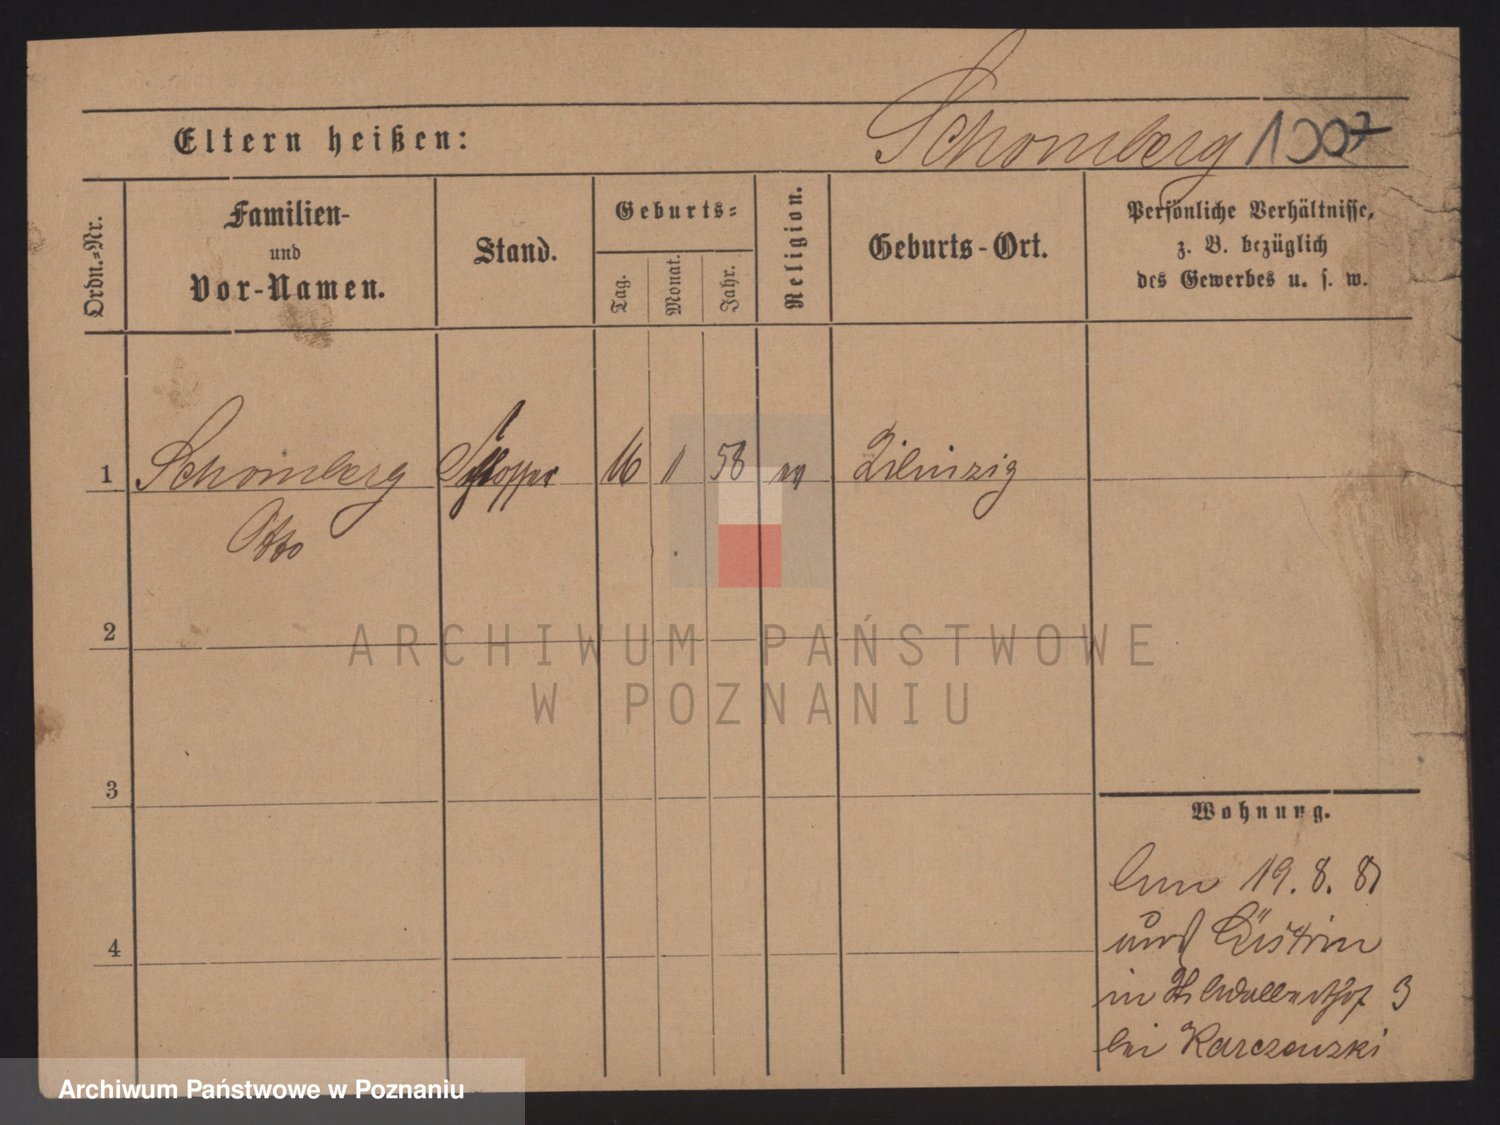 Eltern heißen:
Schomberg 1007
Ordn.-Nr.
Familien-
und
Vor-Namen.
Stand.
Geburts-
Tag.
Monat.
Jahr.
Religion.
Geburts-Ort.
Persönliche Verhältnisse,
z. B. bezüglich
des Gewerbes u. s. w.
1 Schomberg 16 1 58 ev Zilinzig
Otto
2
3
4
Wohnung.
19. 8. 81
Cüstrin
in 3
bei Karczewski
ARCHIWUM PAŃSTWOWE
W POZNANIU
Archiwum Państwowe w Poznaniu